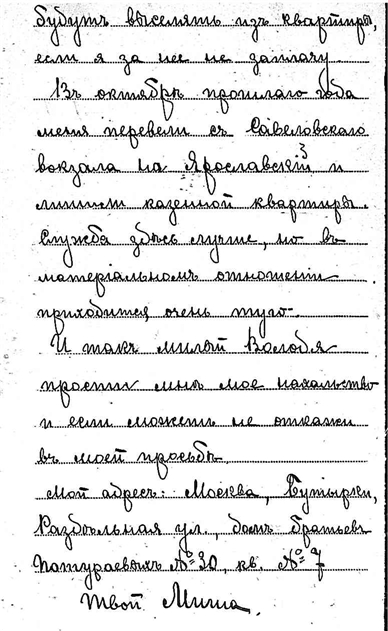 будутъ выселять изъ квартиры,
если я за нее не заплачу.
13го октября прошлаго года
меня перевели съ Савеловскаго
вокзала на Ярославскій 3 и
лишили казенной квартиры.
Служба здѣсь лучше, но въ
матеріальномъ отношеніи
приходится очень туго.
И такъ милый Володя
прости мнѣ мое нахальство
и если можешь не откажи
въ моей просьбѣ.
Мой адресъ: Москва, Бутырки,
Раздѣльная ул., домъ братьевъ
№ 30, кв. № 7
Твой Миша.